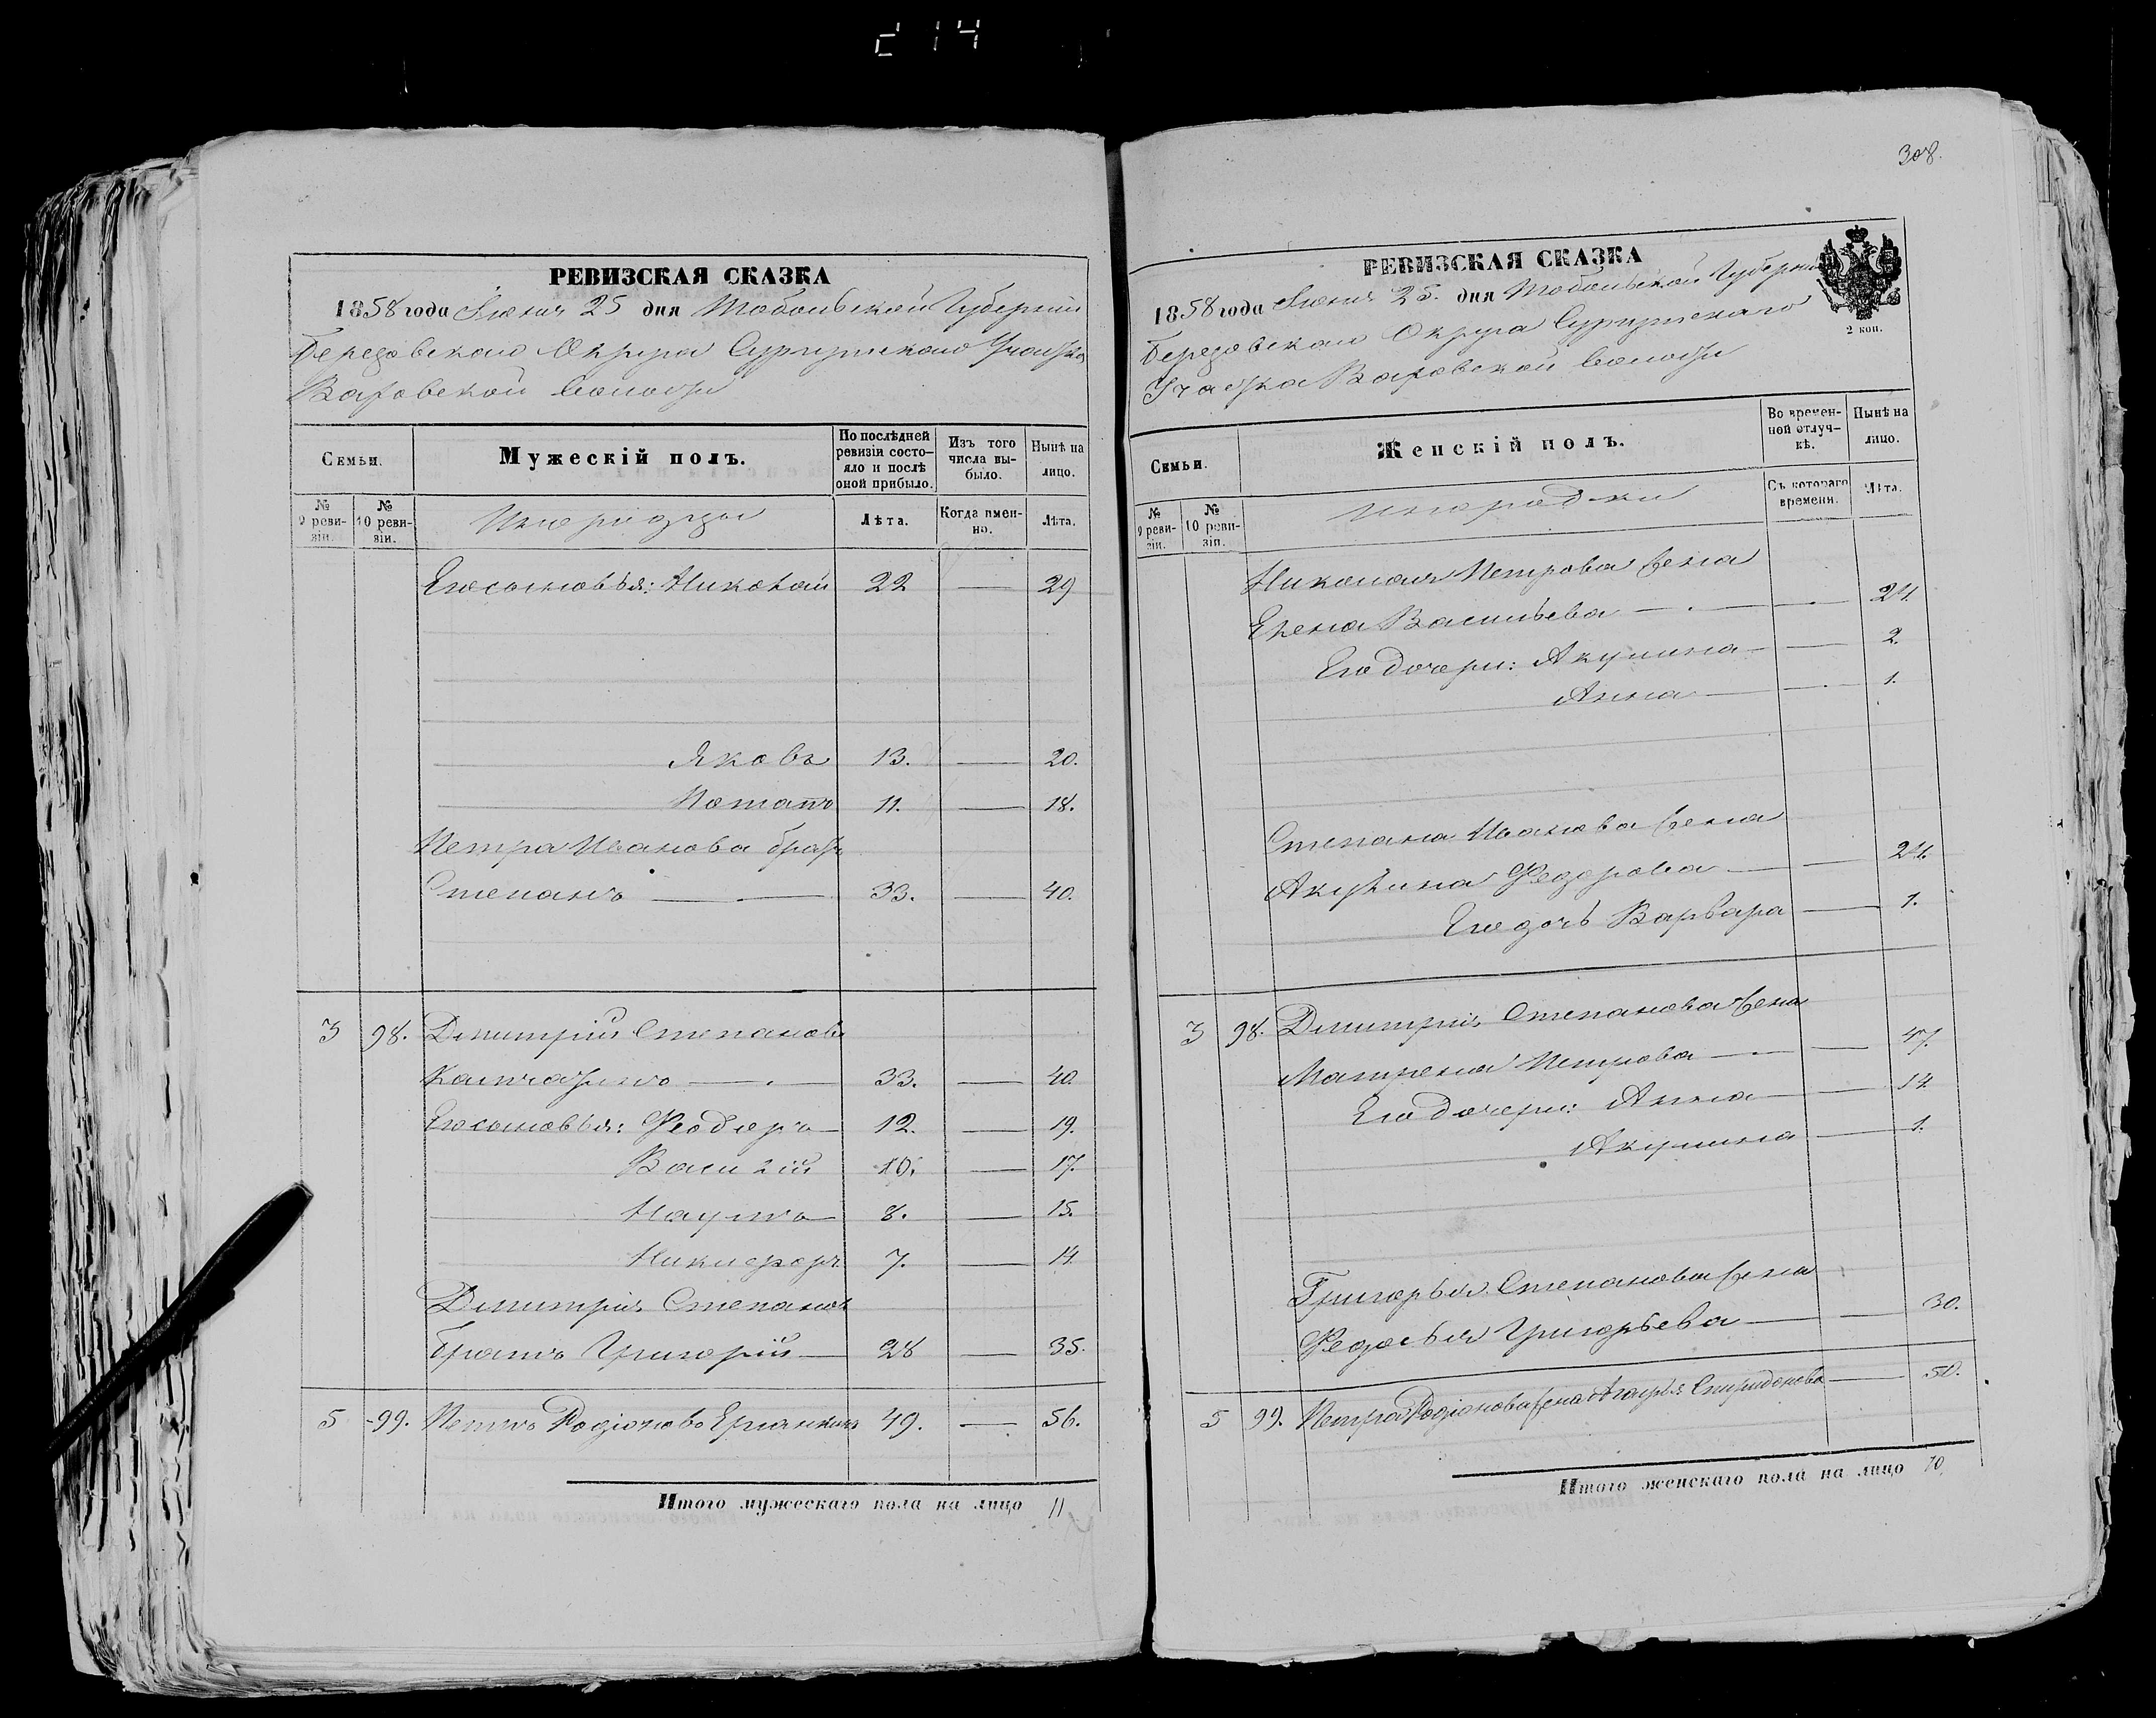 с 14
РЕВИЗСКАЯ СКАЗКА
1858 года Іюня 25 дня Тобольской Губерніи
Березовскаго Округа Сургутскаго Участка
Ваховской волости
Семьи.
Мужескій полъ.
По послѣдней ревизіи состояло и послѣ оной прибыло.
Изъ того числа выбыло.
Нынѣ на лицо.
№ 9 ревизіи.
№ 10 ревизіи.
Инородцы
Лѣта.
Когда именно.
Лѣта.
Его сыновья: Николай 22 — 29
Яковъ 13. — 20.
Потапъ 11. — 18.
Петра Иванова братъ
Степанъ — 33. — 40.
3 98. Дмитрій Степановъ
33. — 40.
Его сыновья: Феодоръ 12. — 19.
Василій 10. — 17.
Наумъ 8. — 15.
Никифоръ 7. — 14
Дмитрія Степанова
братъ Григорій — 28 — 35.
5 99. Петръ Родіоновъ 49. — 56.
Итого мужескаго пола на лицо 11
308.
РЕВИЗСКАЯ СКАЗКА
1858 года Іюня 25. дня Тобольской Губерніи
2 коп.
Березовскаго Округа Сургутскаго
Участка Ваховской волости
Семьи.
Женскій полъ.
Во временной отлучкѣ.
Нынѣ на лицо.
№ 9 ревизіи.
№ 10 ревизіи.
инородки
Съ котораго времени.
Лѣта.
Николая Петрова жена
Елена Васильева — — 24.
Его дочери: Акулина — — 2.
Анна — — 1.
Степана Иванова жена
Акулина Федорова — — 24.
Его дочь Варвара — 1.
3 98. Дмитрія Степанова жена
Матрена Петрова — — 47.
Его дочери: Анна — — 14
Акулина — 1.
Григорья Степанова жена
Федосья Григорьева — — 30.
5 99. Петра Родіонова жена Агафья Спиридонова — 50.
Итого женскаго пола на лицо 10.